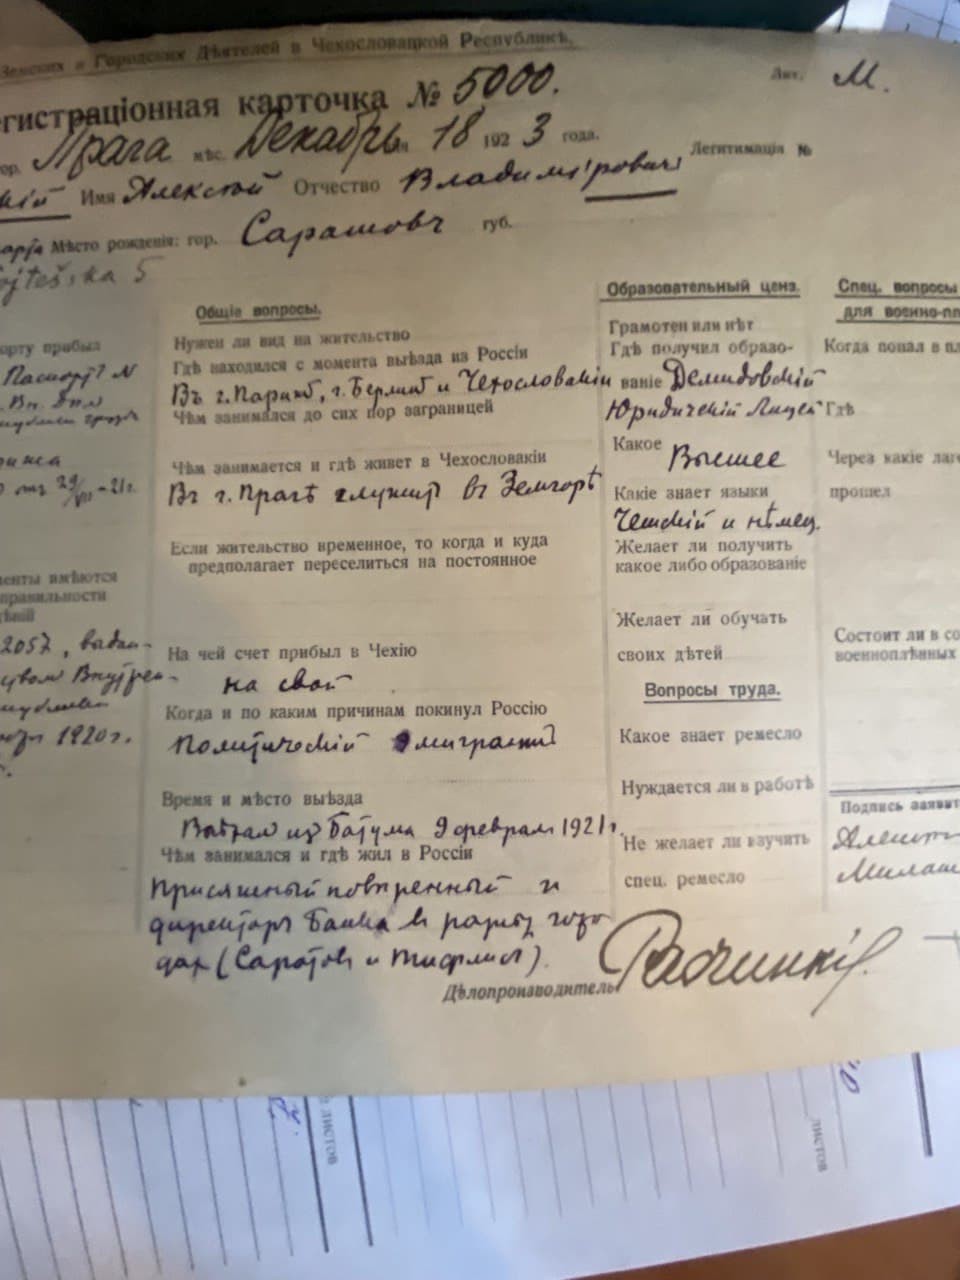 Земских и Городских Дѣятелей в Чехословацкой Республикѣ.
Лит. М.
егистраціонная карточка № 5000.
гор. Прага мѣс. Декабрь 18 1923 года.
Легитимація №
кій Имя Алексѣй Отчество Владиміровичъ
Мѣсто рожденія: гор. Саратовъ губ.
ojtešska 5
орту прибыл
Паспортъ №
29/VII-21г.
менты имѣются
правильности
2057, выдан-
ством Внутрен-
1920 г.
Общіе вопросы.
Нужен ли вид на жительство
Гдѣ находился с момента выѣзда из Россіи
Въ г. Парижѣ, г. Берлинѣ и Чехословакіи
Чѣм занимался до сих пор заграницей
Чѣм занимается и гдѣ живет в Чехословакіи
Въ г. Прагѣ служит въ Земгорѣ
Если жительство временное, то когда и куда
предполагает переселиться на постоянное
На чей счет прибыл в Чехію
на свой
Когда и по каким причинам покинул Россію
Политическій эмигрант
Время и мѣсто выѣзда
Выѣхал из Батума 9 февраля 1921 г.
Чѣм занимался и гдѣ жил в Россіи
Присяжный повѣренный и
директоръ банка въ разных горо-
дах (Саратов и Тифлис).
Дѣлопроизводитель
Образовательный ценз.
Грамотен или нѣт
Гдѣ получил образо-
ваніе Демидовскій
Юридическій Лицей
Какое
Высшее
Какіе знает языки
Чешскій и нѣмец.
Желает ли получить
какое либо образованіе
Желает ли обучать
своих дѣтей
Вопросы труда.
Какое знает ремесло
Нуждается ли в работѣ
Не желает ли изучить
спец. ремесло
Спец. вопросы
для военно-пл
Когда попал в пл
Гдѣ
Через какіе лаге
прошел
Состоит ли в со
военноплѣнных
Подпись заявит
Алекс
Милаш
листов
листов